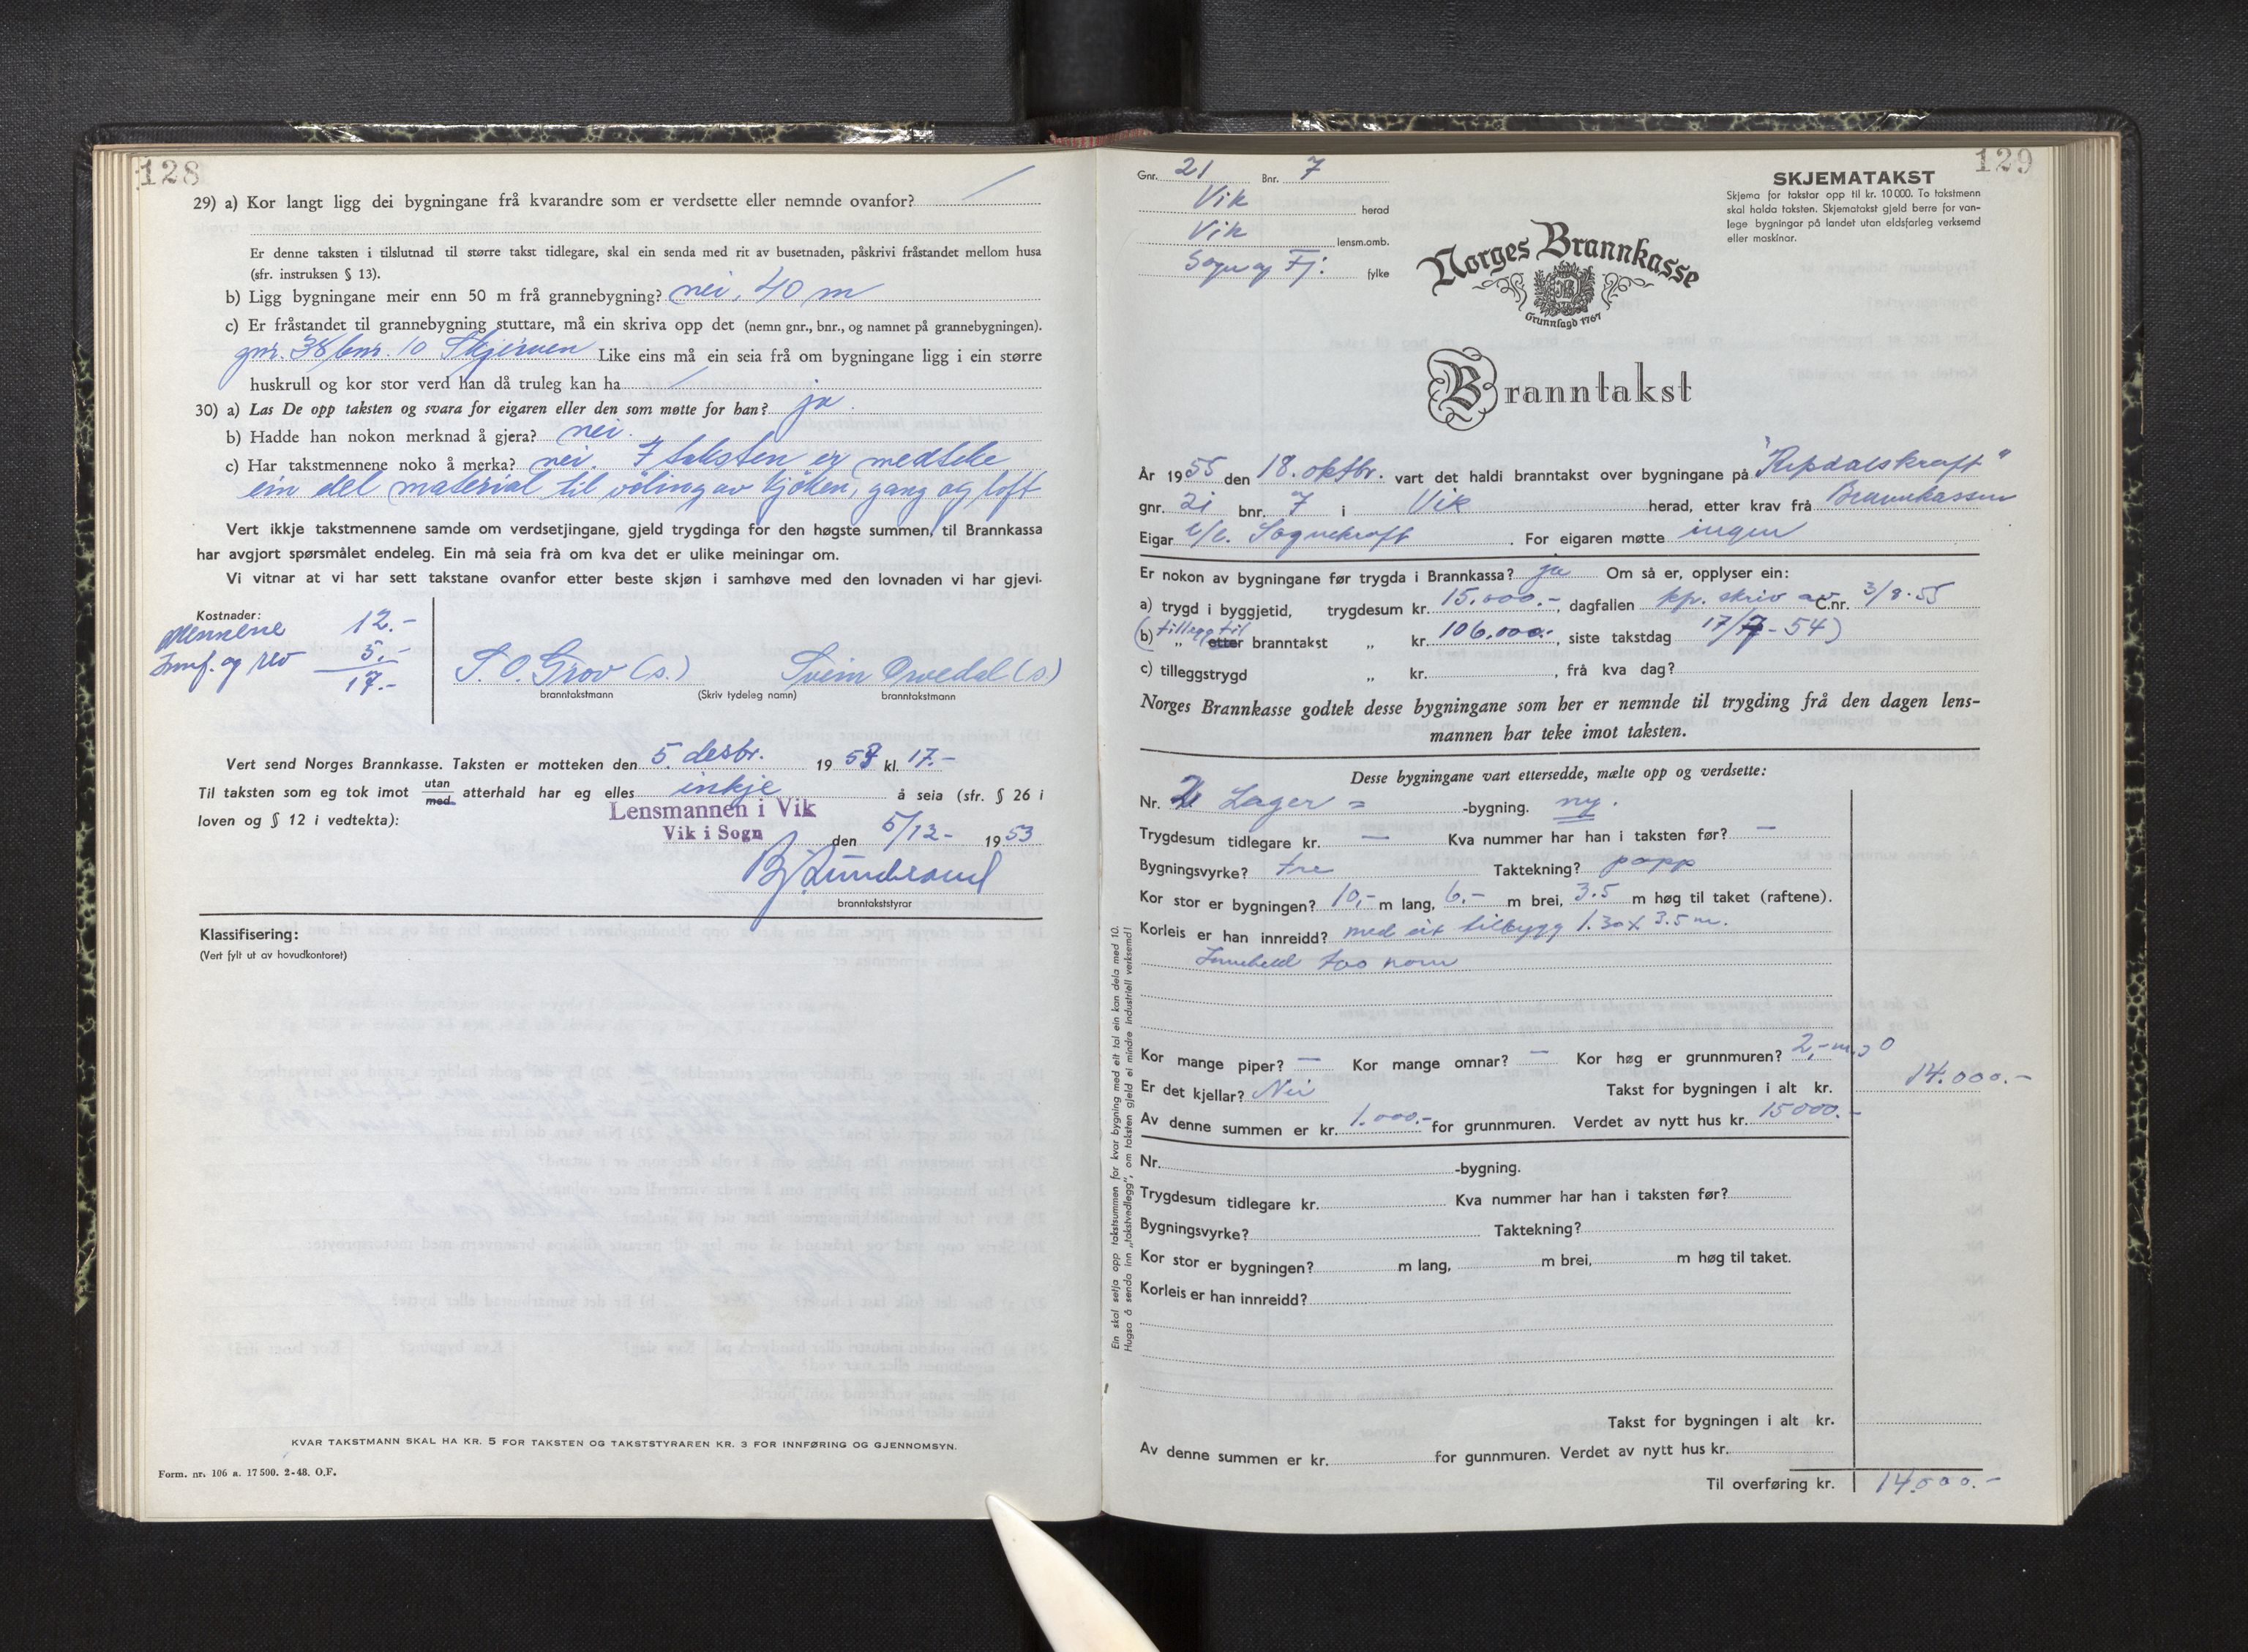 128
29) a) Kor langt ligg dei bygningane frå kvarandre som er verdsette eller nemnde ovanfor? /
Er denne taksten i tilslutnad til større takst tidlegare, skal ein senda med rit av busetnaden, påskrivi fråstandet mellom husa
(sfr. instruksen § 13).
b) Ligg bygningane meir enn 50 m frå grannebygning? nei, 40 m
c) Er fråstandet til grannebygning stuttare, må ein skriva opp det (nemn gnr., bnr., og namnet på grannebygningen).
gnr. 38 bnr. 10 Skjerven Like eins må ein seia frå om bygningane ligg i ein større
huskrull og kor stor verd han då truleg kan ha /
30) a) Las De opp taksten og svara for eigaren eller den som møtte for han? ja
b) Hadde han nokon merknad å gjera? nei.
c) Har takstmennene noko å merka? nei. I taksten er medteke
ein del material til vøling av kjøken, gang og loft
Vert ikkje takstmennene samde om verdsetjingane, gjeld trygdinga for den høgste summen, til Brannkassa
har avgjort spørsmålet endeleg. Ein må seia frå om kva det er ulike meiningar om.
Vi vitnar at vi har sett takstane ovanfor etter beste skjøn i samhøve med den lovnaden vi har gjevi.
Kostnader:
Mennene 12.-
Innf. og rev 5.-
17.-
S. O. Grov (s.) Svein Orvedal (s)
branntakstmann (Skriv tydeleg namn) branntakstmann
Vert send Norges Brannkasse. Taksten er motteken den 5. desbr. 1953 kl. 17.-
Til taksten som eg tok imot utan med atterhald har eg elles inkje å seia (sfr. § 26 i
loven og § 12 i vedtekta):
Lensmannen i Vik
Vik i Sogn
den 5/12- 1953
branntakststyrar
Klassifisering:
(Vert fylt ut av hovudkontoret)
KVAR TAKSTMANN SKAL HA KR. 5 FOR TAKSTEN OG TAKSTSTYRAREN KR. 3 FOR INNFØRING OG GJENNOMSYN.
Form. nr. 106 a. 17 500. 2-48. O.F.
129
Gnr. 21 Bnr. 7
Vik herad
Vik lensm.omb.
Sogn og Fj. fylke
SKJEMATAKST
Skjema for takstar opp til kr. 10 000. To takstmenn
skal halda taksten. Skjematakst gjeld berre for van-
lege bygningar på landet utan eldsfarleg verksemd
eller maskinar.
Norges Brannkasse
Grunnlagd 1767
Branntakst
År 1955 den 18. oktbr. vart det haldi branntakst over bygningane på "Refsdalskraft"
gnr. 21 bnr. 7 i Vik herad, etter krav frå Brannkassen
Eigar L/L. Sognekraft. For eigaren møtte ingen
Er nokon av bygningane før trygda i Brannkassa? ja Om så er, opplyser ein:
a) trygd i byggjetid, trygdesum kr. 15.000.-, dagfallen pp. skriv av C.nr. 3/8-55
(b) " tillegg til etter branntakst " kr. 106.000.-, siste takstdag 17/7-54)
c) tilleggstrygd " kr. , frå kva dag?
Norges Brannkasse godtek desse bygningane som her er nemnde til trygding frå den dagen lens-
mannen har teke imot taksten.
Desse bygningane vart ettersedde, mælte opp og verdsette:
Nr. 2 Lager = -bygning. ny.
Trygdesum tidlegare kr. — Kva nummer har han i taksten før? —
Bygningsvyrke? tre Taktekning? papp
Kor stor er bygningen? 10,- m lang, 6.- m brei, 3.5 m høg til taket (raftene).
Korleis er han innreidd? med eit tilbygg 1.30 x 3.5 m.
Inneheld too rom
Kor mange piper? — Kor mange omnar? — Kor høg er grunnmuren? 2,- m
Er det kjellar? Nei Takst for bygningen i alt kr. 14.000.-
Av denne summen er kr. 1.000.- for grunnmuren. Verdet av nytt hus kr. 15000.-
Nr. -bygning.
Trygdesum tidlegare kr. Kva nummer har han i taksten før?
Bygningsvyrke? Taktekning?
Kor stor er bygningen? m lang, m brei, m høg til taket.
Korleis er han innreidd?
Takst for bygningen i alt kr.
Av denne summen er kr. for gunnmuren. Verdet av nytt hus kr.
Til overføring kr. 14.000.-
Ein skal setja opp takstsummen for kvar bygning med eit tal ein kan dela med 10.
Hugsa å senda inn „takstvedlegg", om taksten gjeld ei mindre industriell verksemd!